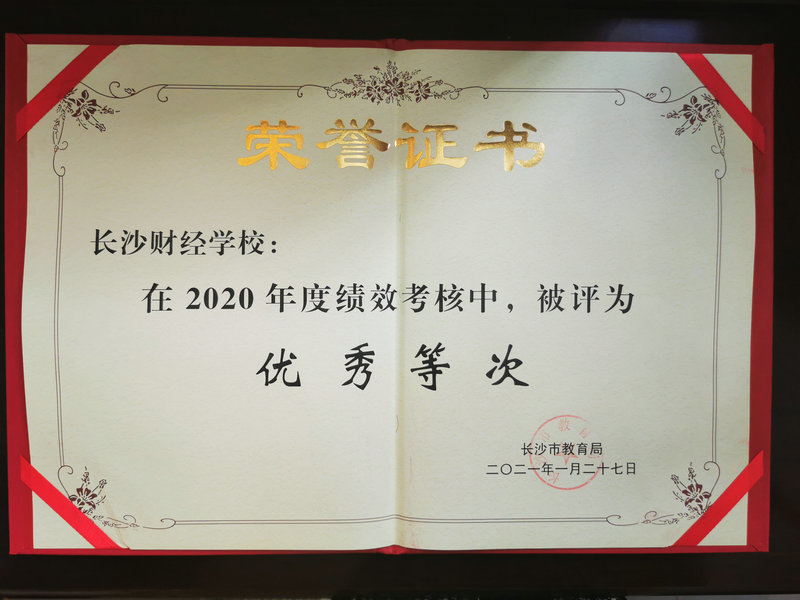 荣誉证书
长沙财经学校：
在 2020 年度绩效考核中，被评为
优秀等次
长沙市教育局
二〇二一年一月二十七日